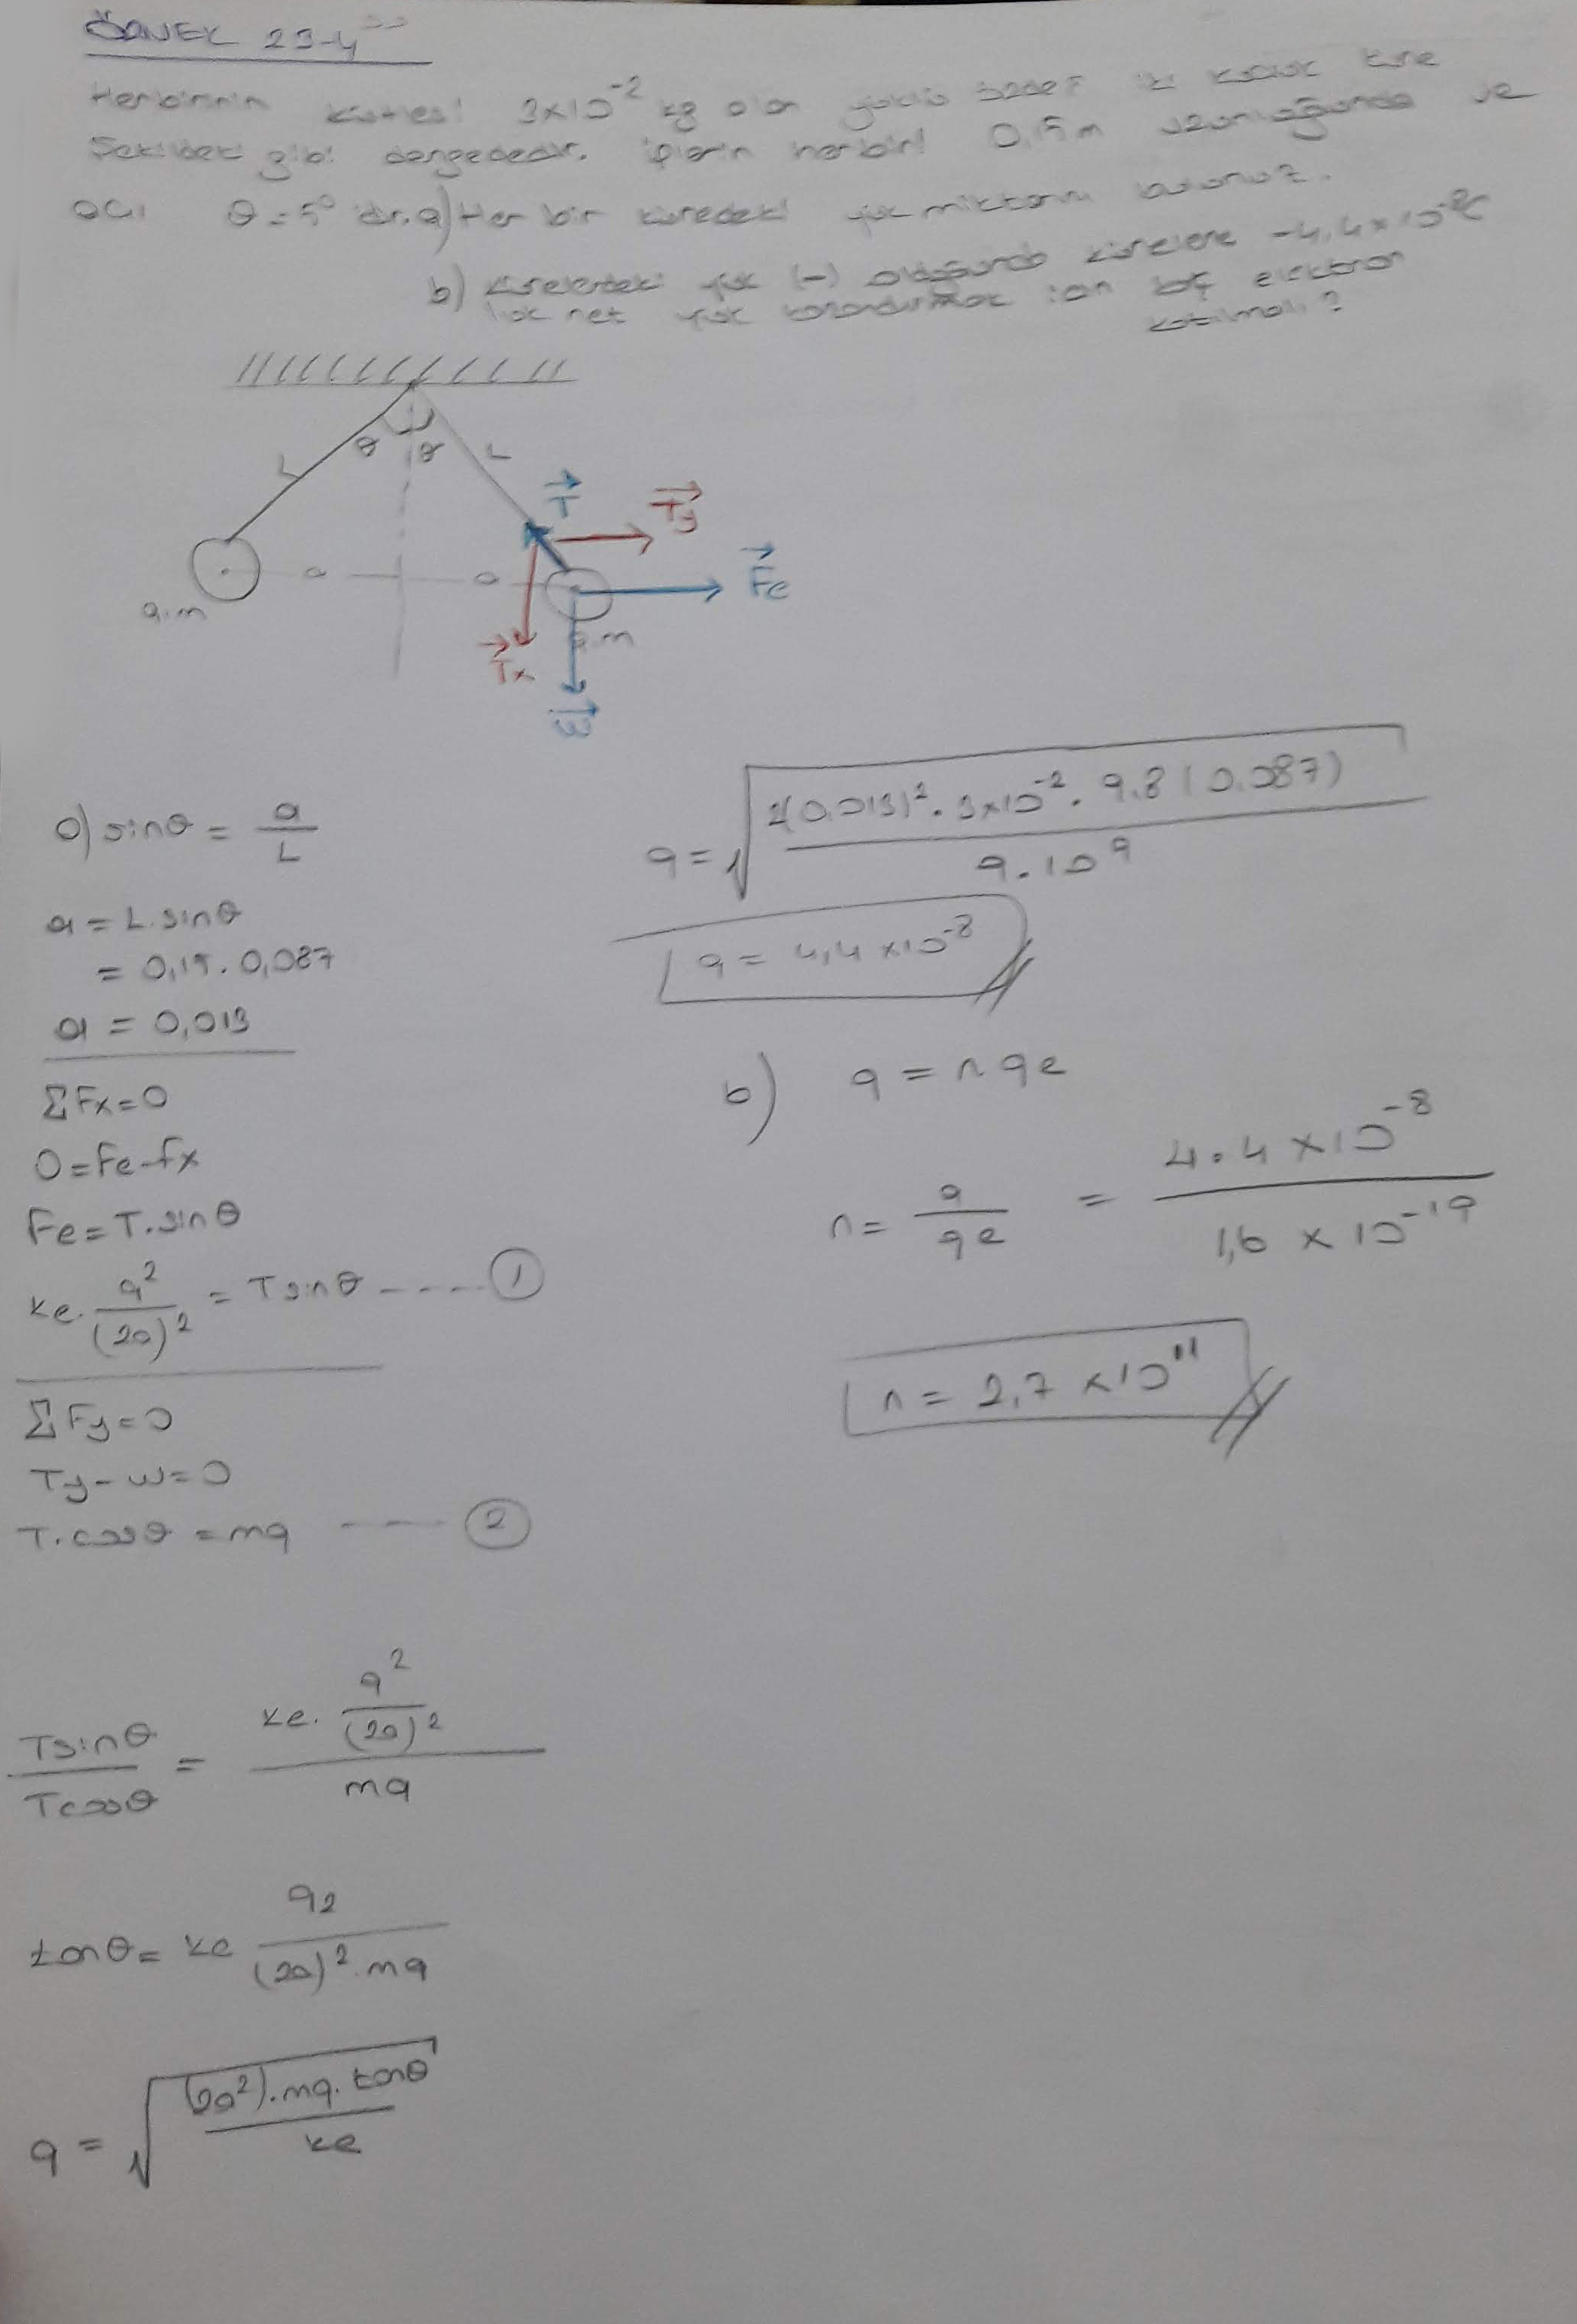 ÖRNEK 23-4
Herbirinin kütlesi 3x10⁻² kg olan yüklü özdeş iki küçük küre
Şekildeki gibi dengededir. İplerin herbiri 0,15m uzunluğunda ve
açı θ=5° dir. a) Her bir küredeki yük miktarını bulunuz.
b) Kürelerdeki yük (-) olduğunda kürelere -4,4x10⁻⁸C
lok net yük kazandırmak için kaç elektron
katılmalı?
θ θ
L L
T Ty
Fe
a a
q.m q.m
Tx
W
a) sinθ = a/L
a = L.sinθ
= 0,15.0,087
a = 0,013
ΣFx=0
0=Fe-fx
Fe=T.sinθ
ke. q²/(2a)² = Tsinθ ---- ①
ΣFy=0
Ty-w=0
T.cosθ = mg ---- ②
Tsinθ/Tcosθ = ke. q²/(2a)² / mg
tanθ = ke q2/(2a)².mg
q = √(2a²).mg.tanθ/ke
q = √2(0.013)².3x10⁻².9.8(0.087)/9.10⁹
q = 4,4x10⁻⁸
b) q = nqe
n = q/qe = 4.4x10⁻⁸/1,6x10⁻¹⁹
n = 2,7x10¹¹